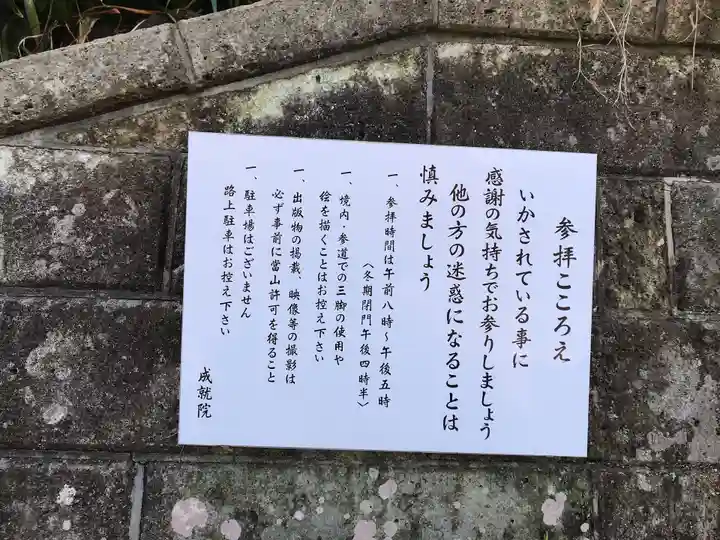 参拝こころえ
いかされている事に
感謝の気持ちでお参りしましょう
他の方の迷惑になることは
慎みましょう
一、参拝時間は午前八時～午後五時
（冬期閉門午後四時半）
一、境内・参道での三脚の使用や
絵を描くことはお控え下さい
一、出版物の掲載、映像等の撮影は
必ず事前に當山許可を得ること
一、駐車場はございません
路上駐車はお控え下さい
成就院